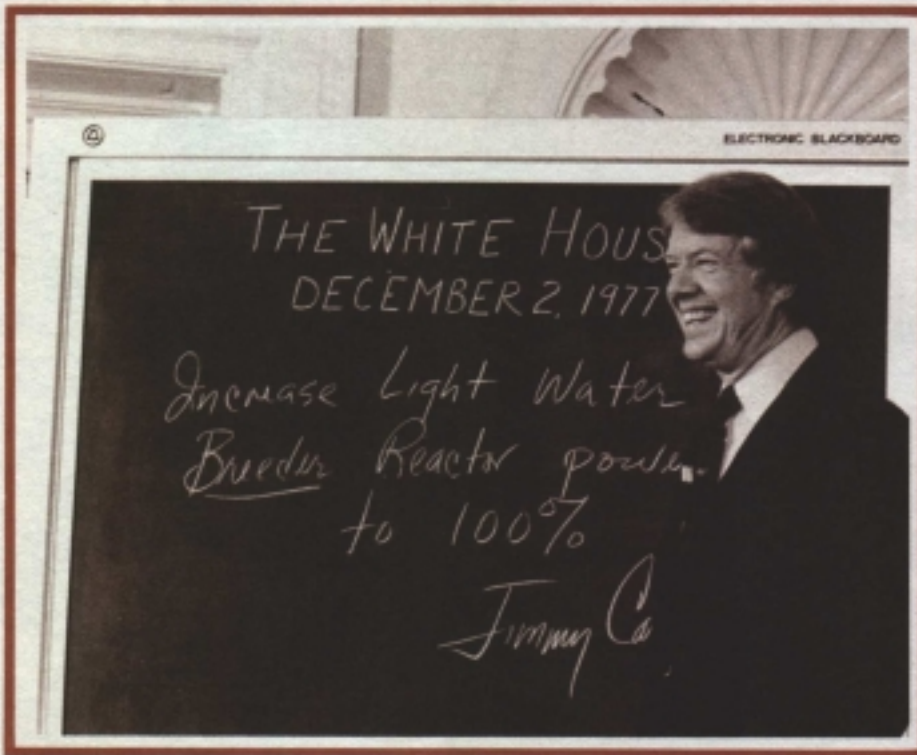 ELECTRONIC BLACKBOARD
THE WHITE HOUS
DECEMBER 2, 1977
Increase Light Water
Breeder Reactor power
to 100%
Jimmy Ca